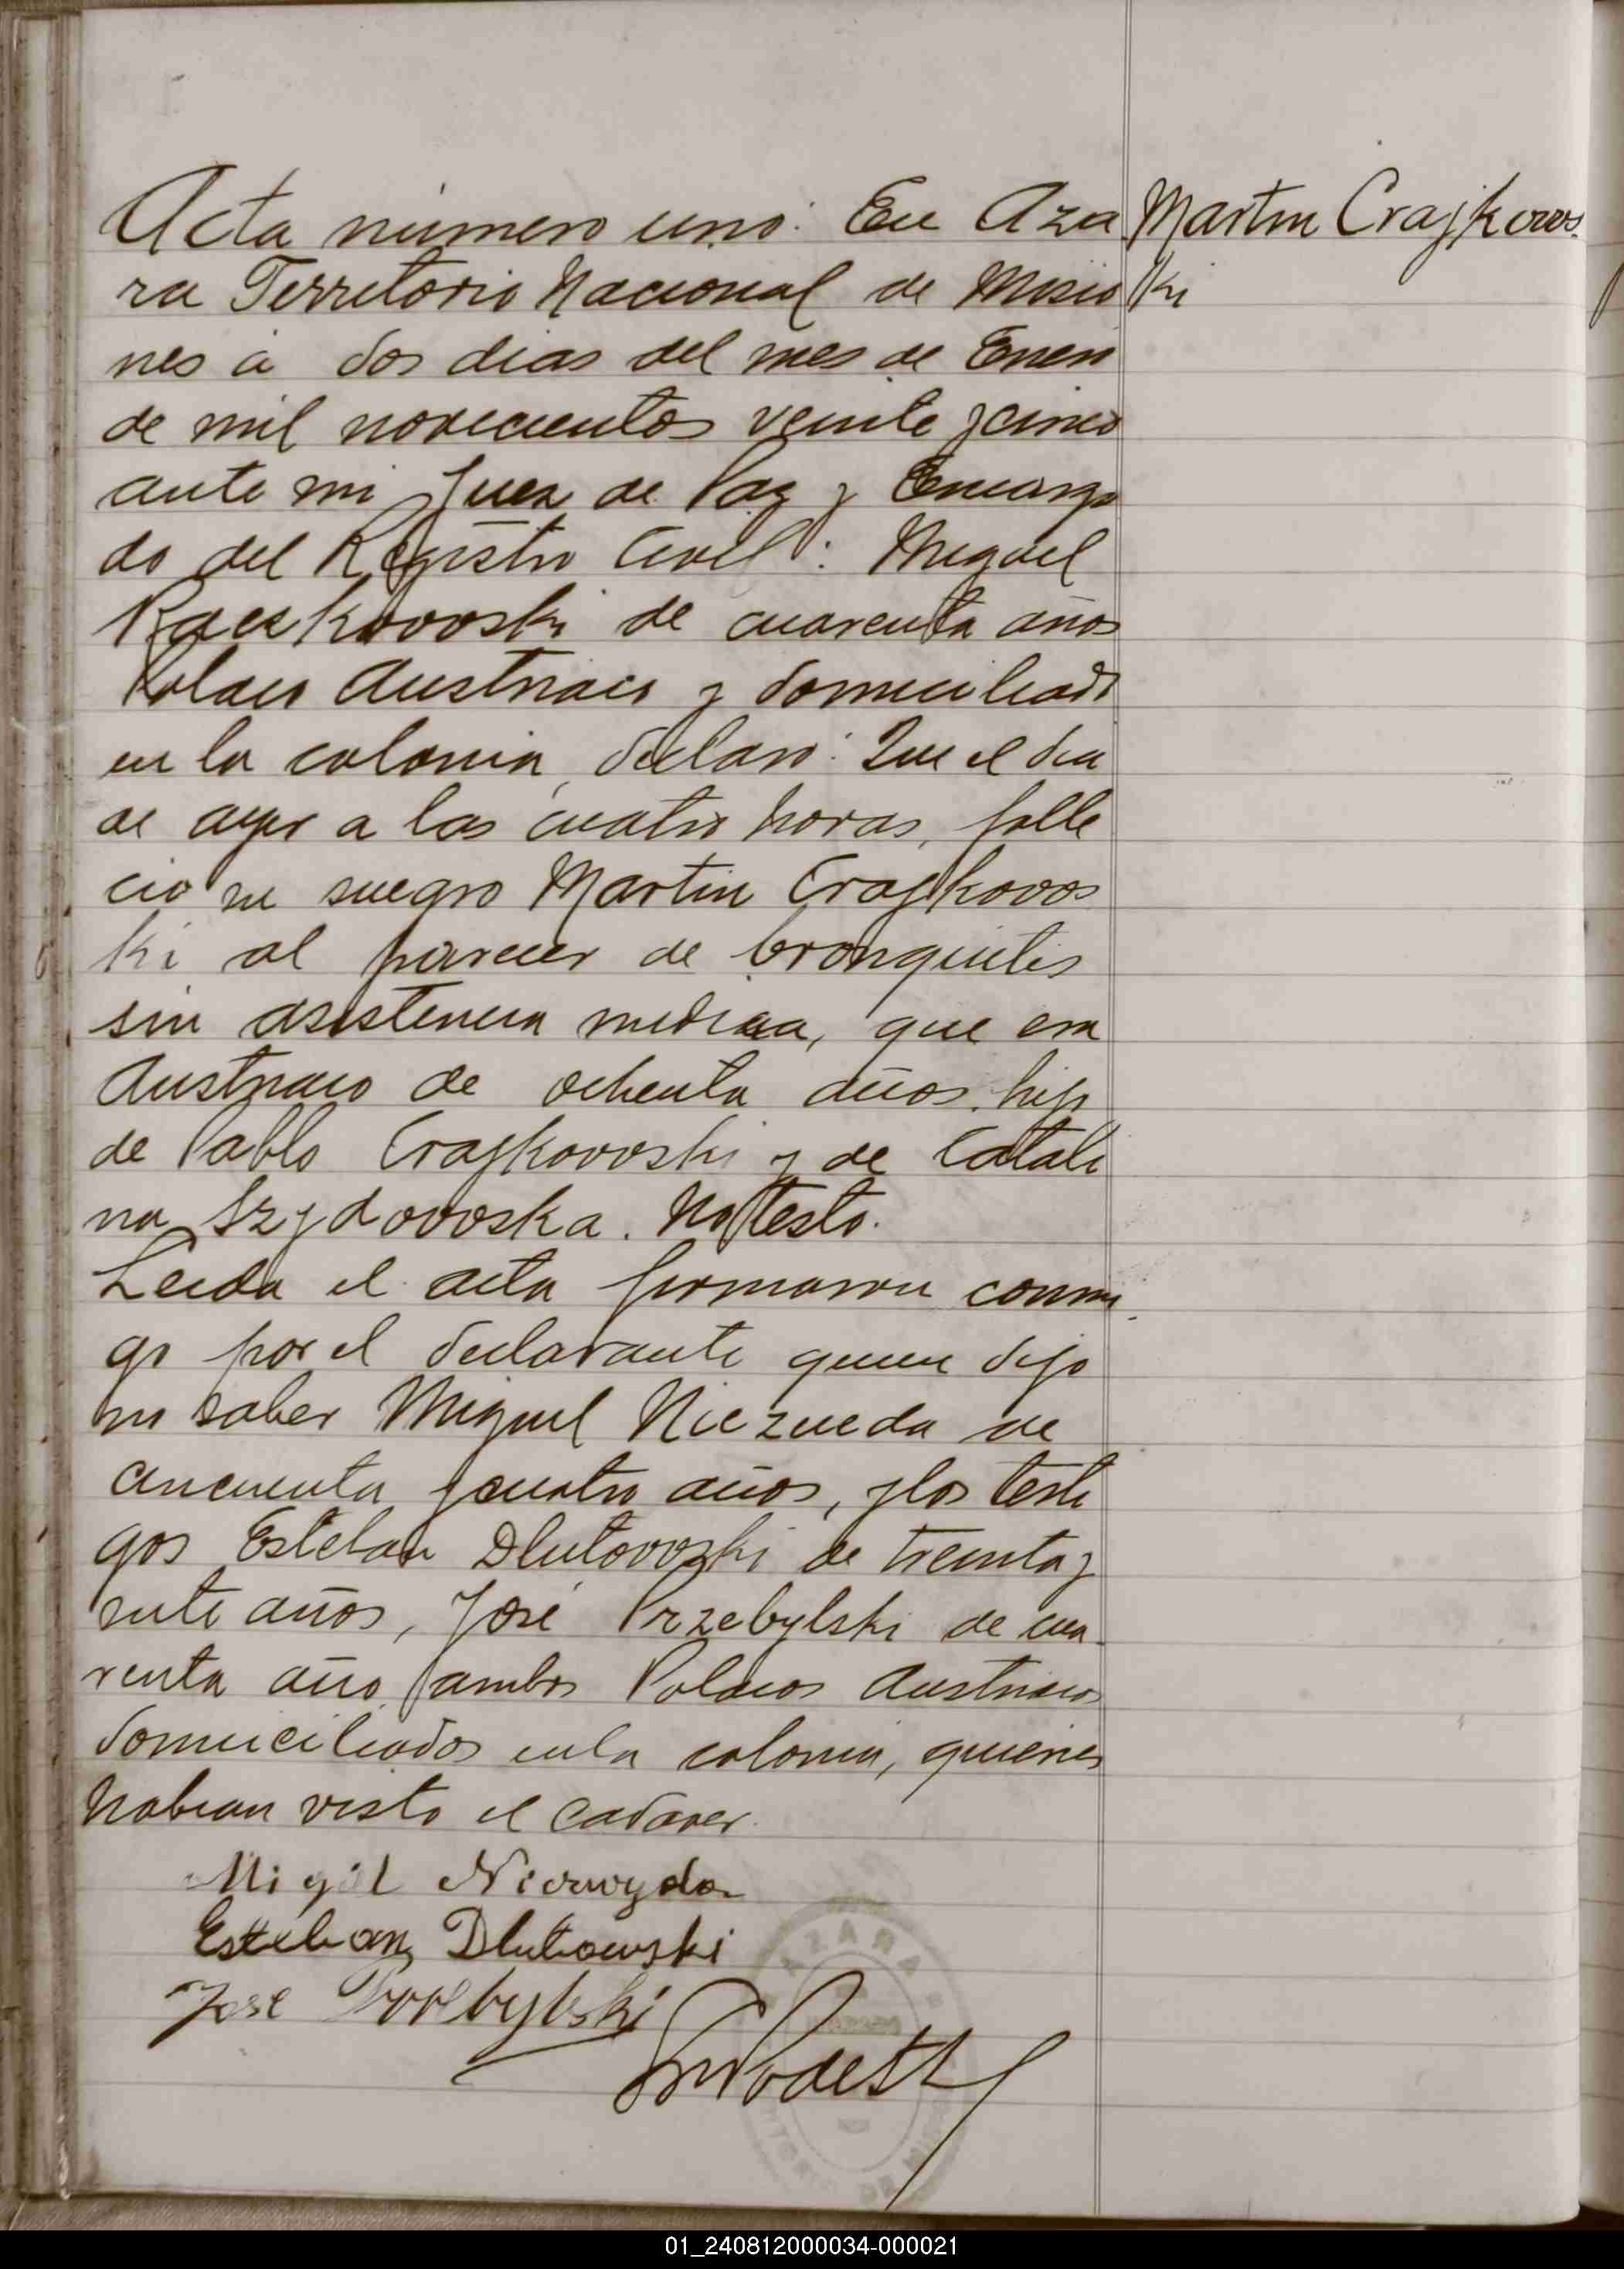 Acta número uno: En Aza
Martin Crajkovos
ra Territorio Nacional de Misio
ki
nes á dos dias del mes de Enero
de mil novecientos veinte y cinco
ante mi Juez de Paz y Encarga
do del Registro Civil: Miguel
Raczkovoski de cuarenta años
Polaco Austriaco y domiciliado
en la colonia, declaró: Que el dia
de ayer a las cuatro horas, falle
ció su suegro Martin Crajkovos
ki al parecer de bronquitis
sin asistencia medica, que era
Austriaco de ochenta años, hijo
de Pablo Crajkovoski y de Catali
na Szydovoska. No testó.
Leida el acta firmaron conmi
go por el declarante quien dijo
no saber Miguel Niezueda de
cincuenta y cuatro años, y los testi
gos Esteban Dlutovoski de treinta y
siete años, José Przebylski de cua-
renta años, ambos Polacos Austriacos
domiciliados en la colonia, quienes
habian visto el cadaver.
Migil
Esteban Dlutowski
Jose
AZARA
01_240812000034-000021